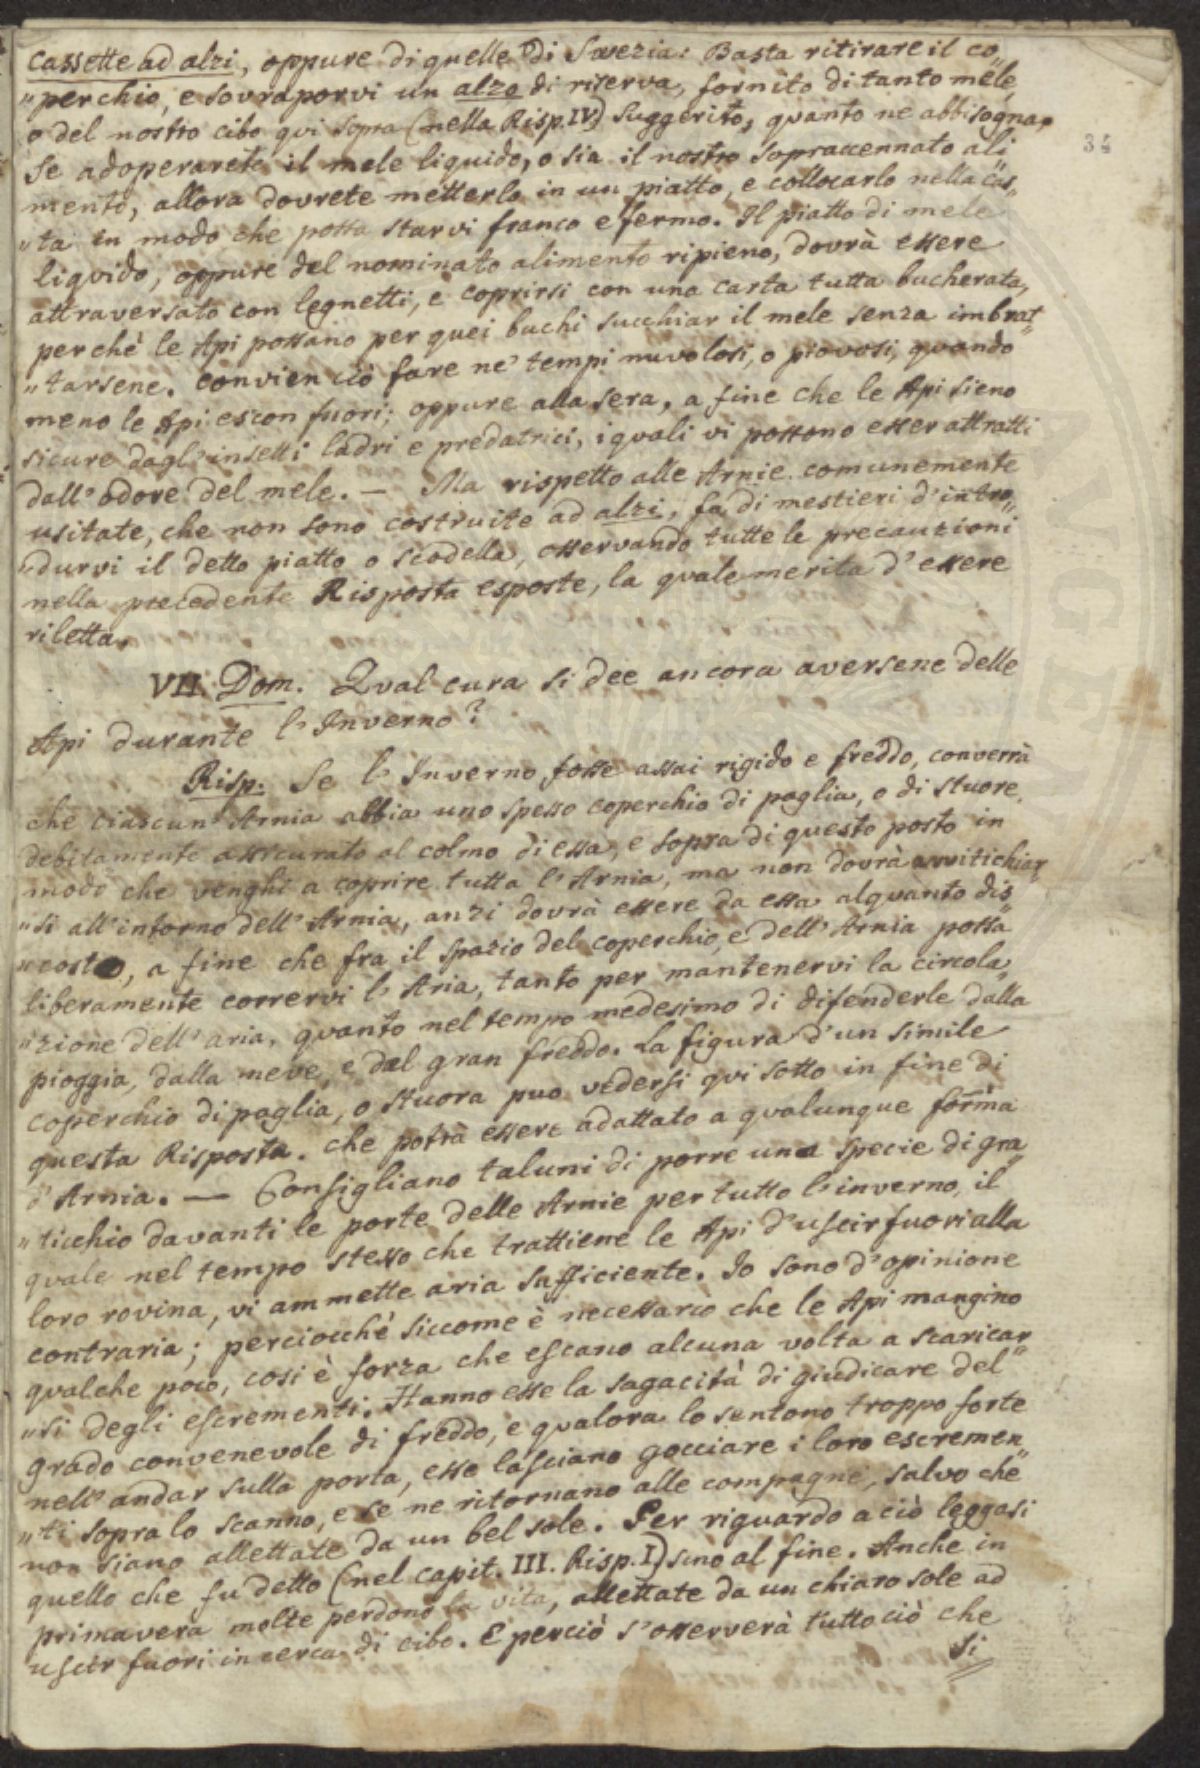 cassette ad alzi, oppure di quelle di Svezia: Basta ritirare il co„
„perchio, e sovraporvi un alzo di riserva, fornito di tanto mele,
o del nostro cibo qui sopra (nella Risp. IV) suggerito, quanto ne abbisogna.
34
Se adoperarete il mele liquido, o sia il nostro sopraccennato ali„
mento, allora dovrete metterlo in un piatto, e collocarlo nella cas„
„ta in modo che possa starvi franco e fermo. Il piatto di mele
liquido, oppure del nominato alimento ripieno, dovrà essere
attraversato con legnetti, e coprirsi con una carta tutta bucherata,
perchè le Api possano per quei buchi succhiar il mele senza imbrat„
„tarsene. Convien ciò fare ne' tempi nuvolosi, o piovosi, quando
meno le Api escon fuori; oppure alla sera, a fine che le Api sieno
sicure dagl' insetti ladri e predatrici, i quali vi possono esser attratti
dall' odore del mele. — Ma rispetto alle Arnie comunemente
usitate, che non sono costruite ad alzi, fa di mestieri d' intro„
„durvi il detto piatto o scodella, osservando tutte le precauzioni
nella precedente Risposta esposte, la quale merita d' essere
riletta.
VII. Dom. Qual cura si dee ancora aversene delle
Api durante l' Inverno?
Risp: Se l' Inverno fosse assai rigido e freddo, converrà
che ciascun' Arnia abbia uno spesso coperchio di paglia, o di stuore,
debitamente assicurato al colmo di essa, e sopra di questo posto in
modo che venghi a coprire tutta l' Arnia, ma non dovrà avvitichiar„
„si all' intorno dell' Arnia, anzi dovrà essere da essa alquanto dis„
„costo, a fine che fra il spazio del coperchio, e dell' Arnia possa
liberamente corrervi l' Aria, tanto per mantenervi la circola„
„zione dell' aria, quanto nel tempo medesimo di difenderle dalla
pioggia, dalla neve, e dal gran freddo. La figura d' un simile
coperchio di paglia, o stuora puo vedersi qui sotto in fine di
questa Risposta. che potrà essere adattato a qualunque forma
d' Arnia. — Consigliano taluni di porre una specie di gra„
„ticchio davanti le porte delle Arnie per tutto l' inverno, il
quale nel tempo stesso che trattiene le Api d' uscir fuori alla
loro rovina, vi ammette aria sufficiente. Io sono d' opinione
contraria; perciocchè siccome è necessario che le Api mangino
qualche poco, cosi è forza che escano alcuna volta a scaricar„
„si degli escrementi. Hanno esse la sagacità di giudicare del
grado convenevole di freddo, e qualora lo sentono troppo forte
nell' andar sulla porta, esse lasciano gocciare i loro escremen„
„ti sopra lo scanno, e se ne ritornano alle compagne, salvo che
non siano allettate da un bel sole. Per riguardo a ciò leggasi
quello che fu detto (nel capit. III. Risp. I) sino al fine. Anche in
primavera molte perdono la vita, allettate da un chiaro sole ad
uscir fuori in cerca di cibo. E perciò s' osserverà tutto ciò che
si